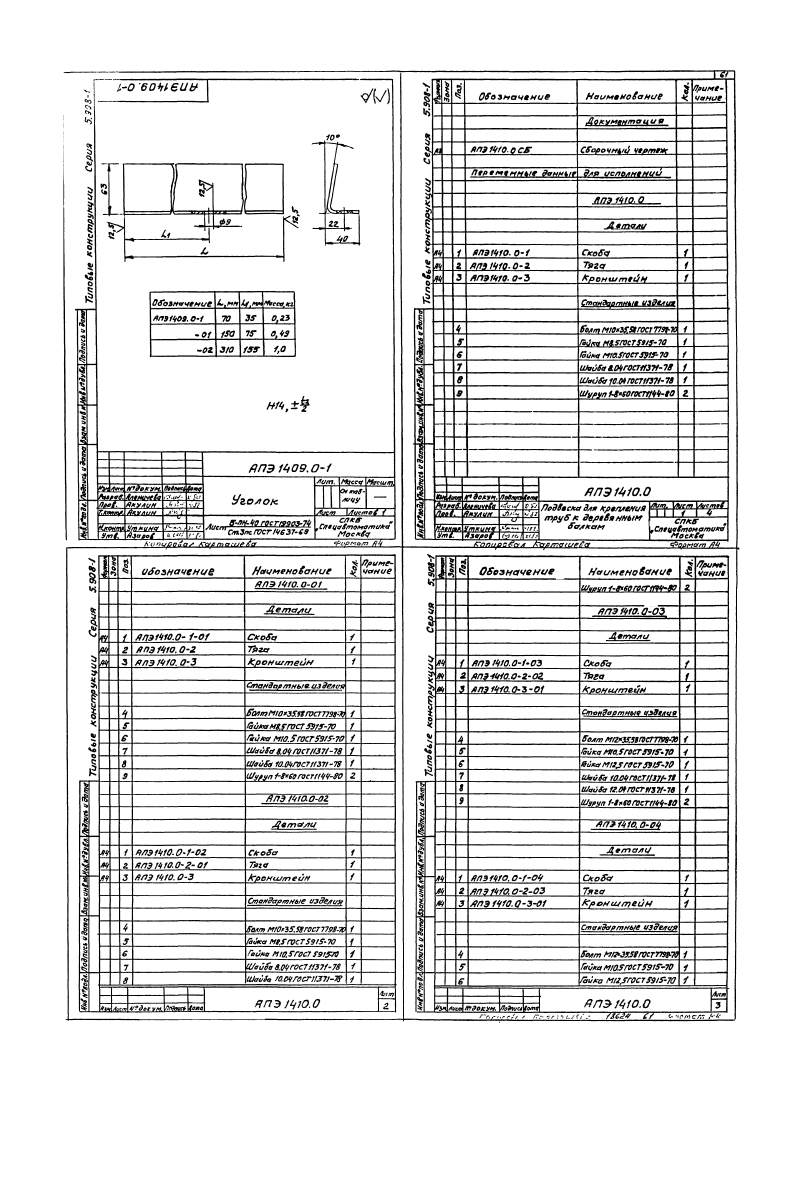 61
АПЭ1409.0-1
Типовые конструкции Серия 5.908-1
10°
63
12,5
12,5
12,5
ϕ9
L₁
L
22
40
Обозначение L, мм L₁, мм Масса, кг
АПЭ1409.0-1 70 35 0,23
-01 150 75 0,49
-02 310 155 1,0
H14, ±
АПЭ 1409.0-1
Уголок
Лит. Масса Масшт.
См. таблицу —
Лист Листов 1
Изм. Лист № докум. Подпись Дата
Разраб. Аленичева
Пров. Акулин
Т.контр. Акулин
Н.контр. Уткина
Утв. Азаров
Лист ГОСТ 19903-74
Ст3пс ГОСТ 14637-69
СПКБ
"Спецавтоматика"
Москва
Копировал Карташева Формат А4
Типовые конструкции Серия 5.908-1
Формат Зона Поз. Обозначение Наименование Кол. Примечание
Документация
АПЭ 1410.0 СБ Сборочный чертеж
Переменные данные для исполнений
АПЭ 1410.0
Детали
А4 1 АПЭ1410.0-1 Скоба 1
А4 2 АПЭ1410.0-2 Тяга 1
А4 3 АПЭ1410.0-3 Кронштейн 1
Стандартные изделия
4 Болт М10×35.58 ГОСТ 7798-70 1
5 Гайка М8.5 ГОСТ 5915-70 1
6 Гайка М10.5 ГОСТ 5915-70 1
7 Шайба 8.04 ГОСТ 11371-78 1
8 Шайба 10.04 ГОСТ 11371-78 1
9 Шуруп 1-8×60 ГОСТ 1144-80 2
АПЭ 1410.0
Изм. Лист № докум. Подпись Дата
Разраб. Аленичева
Пров. Акулин
Т.контр. Акулин
Н.контр. Уткина
Утв. Азаров
Подвеска для крепления
труб к деревянным
балкам
Лит. Лист Листов
1 4
СПКБ
"Спецавтоматика"
Москва
Копировал Карташева Формат А4
Типовые конструкции Серия 5.908-1
Формат Зона Поз. Обозначение Наименование Кол. Примечание
АПЭ 1410.0-01
Детали
А4 1 АПЭ 1410.0-1-01 Скоба 1
А4 2 АПЭ 1410.0-2 Тяга 1
А4 3 АПЭ 1410.0-3 Кронштейн 1
Стандартные изделия
4 Болт М10×35.58 ГОСТ 7798-70 1
5 Гайка М8.5 ГОСТ 5915-70 1
6 Гайка М10.5 ГОСТ 5915-70 1
7 Шайба 8.04 ГОСТ 11371-78 1
8 Шайба 10.04 ГОСТ 11371-78 1
9 Шуруп 1-8×60 ГОСТ 1144-80 2
АПЭ 1410.0-02
Детали
А4 1 АПЭ 1410.0-1-02 Скоба 1
А4 2 АПЭ 1410.0-2-01 Тяга 1
А4 3 АПЭ 1410.0-3 Кронштейн 1
Стандартные изделия
4 Болт М10×35.58 ГОСТ 7798-70 1
5 Гайка М8.5 ГОСТ 5915-70 1
6 Гайка М10.5 ГОСТ 5915-70 1
7 Шайба 8.04 ГОСТ 11371-78 1
8 Шайба 10.04 ГОСТ 11371-78 1
Изм. Лист № докум. Подпись Дата
АПЭ 1410.0
Лист
2
Типовые конструкции Серия 5.908-1
Формат Зона Поз. Обозначение Наименование Кол. Примечание
Шуруп 1-8×60 ГОСТ 1144-80 2
АПЭ 1410.0-03
Детали
А4 1 АПЭ 1410.0-1-03 Скоба 1
А4 2 АПЭ 1410.0-2-02 Тяга 1
А4 3 АПЭ 1410.0-3-01 Кронштейн 1
Стандартные изделия
4 Болт М12×35.58 ГОСТ 7798-70 1
5 Гайка М10.5 ГОСТ 5915-70 1
6 Гайка М12.5 ГОСТ 5915-70 1
7 Шайба 10.04 ГОСТ 11371-78 1
8 Шайба 12.04 ГОСТ 11371-78 1
9 Шуруп 1-8×60 ГОСТ 1144-80 2
АПЭ 1410.0-04
Детали
А4 1 АПЭ 1410.0-1-04 Скоба 1
А4 2 АПЭ 1410.0-2-03 Тяга 1
А4 3 АПЭ 1410.0-3-01 Кронштейн 1
Стандартные изделия
4 Болт М12×35.58 ГОСТ 7798-70 1
5 Гайка М10.5 ГОСТ 5915-70 1
6 Гайка М12.5 ГОСТ 5915-70 1
Изм. Лист № докум. Подпись Дата
АПЭ 1410.0
Лист
3
18624 61